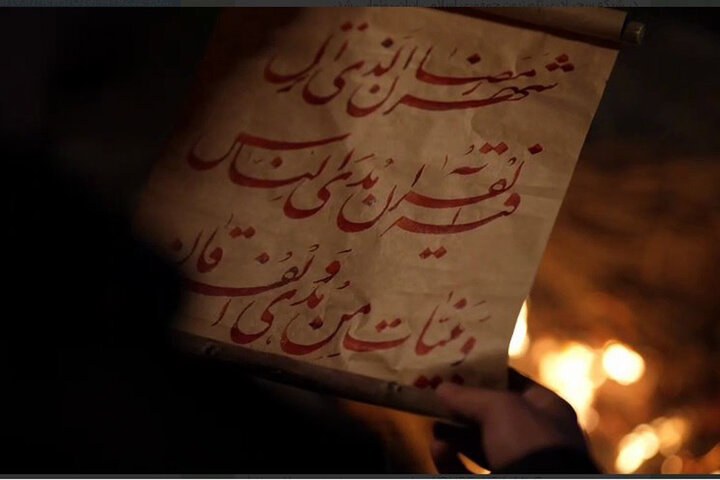 شهر رمضان الذی انزل
فیه القرآن هدی للناس
و بینات من الهدی و الفرقان